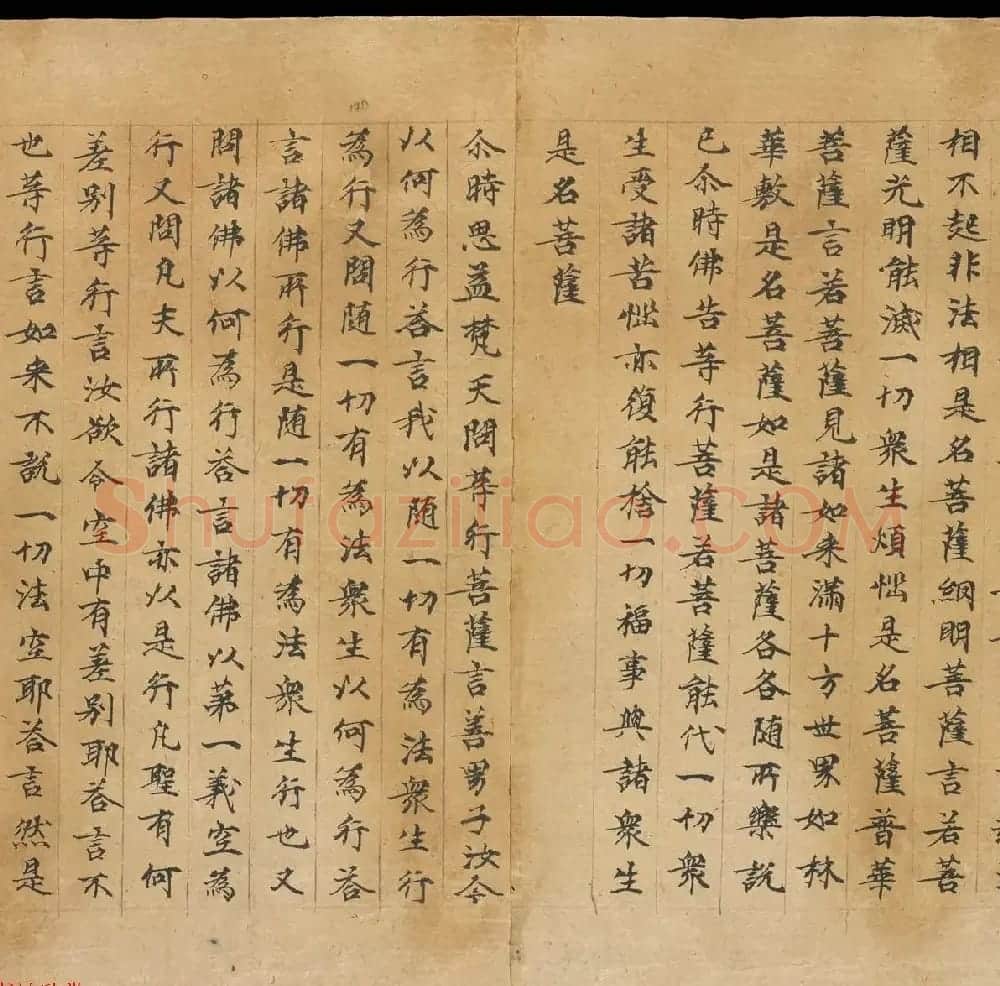 相不起非法相是名菩薩網明菩薩言若菩
薩光明能滅一切衆生煩惱是名菩薩普華
菩薩言若菩薩見諸如来滿十方世界如林
華敷是名菩薩如是諸菩薩各各随所樂說
已尒時佛告等行菩薩若菩薩能代一切衆
生受諸苦惱亦復能捨一切福事與諸衆生
是名菩薩
尒時思益梵天問等行菩薩言善男子汝今
以何為行荅言我以随一切有為法衆生行
為行又問随一切有為法衆生以何為行荅
言諸佛所行是随一切有為法衆生行也又
問諸佛以何為行荅言諸佛以第一義空為
行又問凡夫所行諸佛亦以是行凡聖有何
差別等行言汝欲令空中有差別耶荅言不
也等行言如来不說一切法空耶荅言然是
Shufaziliao.COM